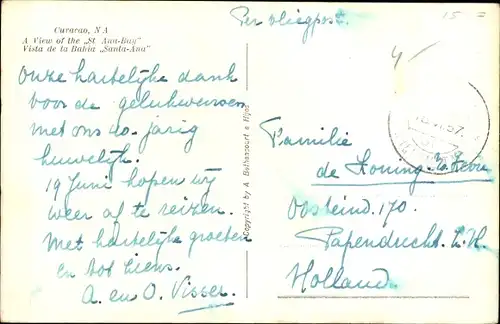 Curacao, N A
A View of the „St Ann-Bay"
Vista de la Bahia „Santa-Ana"
Onze hartelijke dank
voor de gelukwensen
met ons 40-jarig
huwelijk.
19 Juni hopen wij
weer af te reizen.
Met hartelijke groeten
en tot ziens.
A. en O. Visser.
Copyright by A. Bethencourt e Hijos
Per vliegpost.
15 =
57
Familie
de Koning
Oosteind 170.
Papendrecht. Z.H.
Holland.